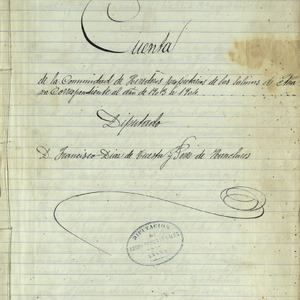 Cuenta
de la Comunidad de Herederos propietarios de las Salinas de Añana
Correspondiente al año de 1913 a 1914
Diputado
D. Francisco Diaz de Tuesta y de
DIPUTACION